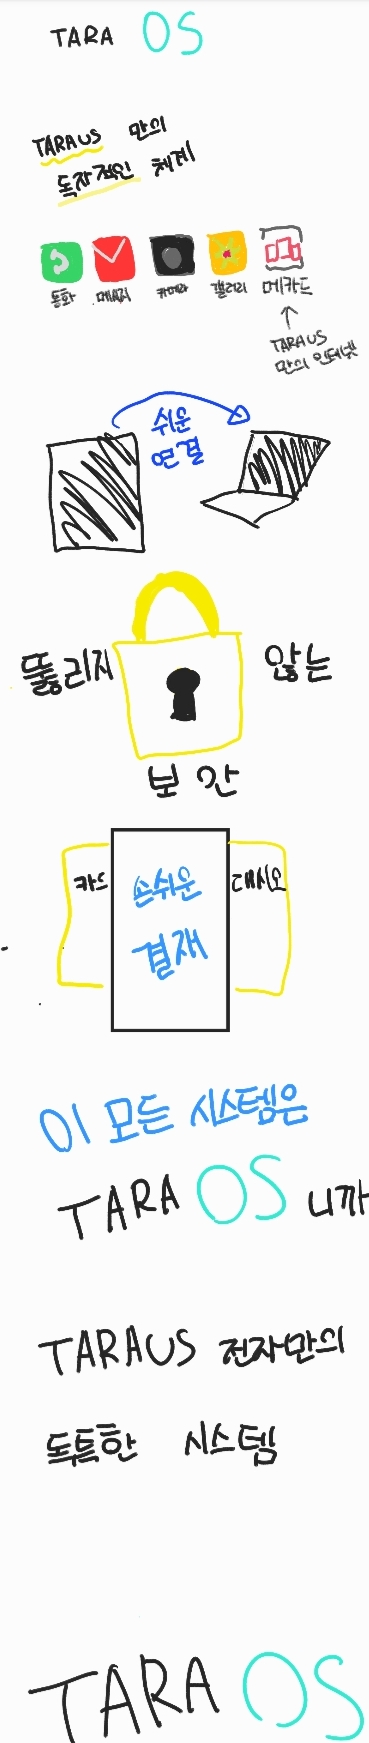 TARA OS
TARAUS 만의
독자적인 체제
통화 메세지 카메라 갤러리 메카드
TARAUS
만의 인터넷
쉬운
연결
뚫리지 않는
보안
카드 손쉬운
결재
이 모든 시스템은
TARA OS 니까
TARAUS 전자만의
독특한 시스템
TARA OS